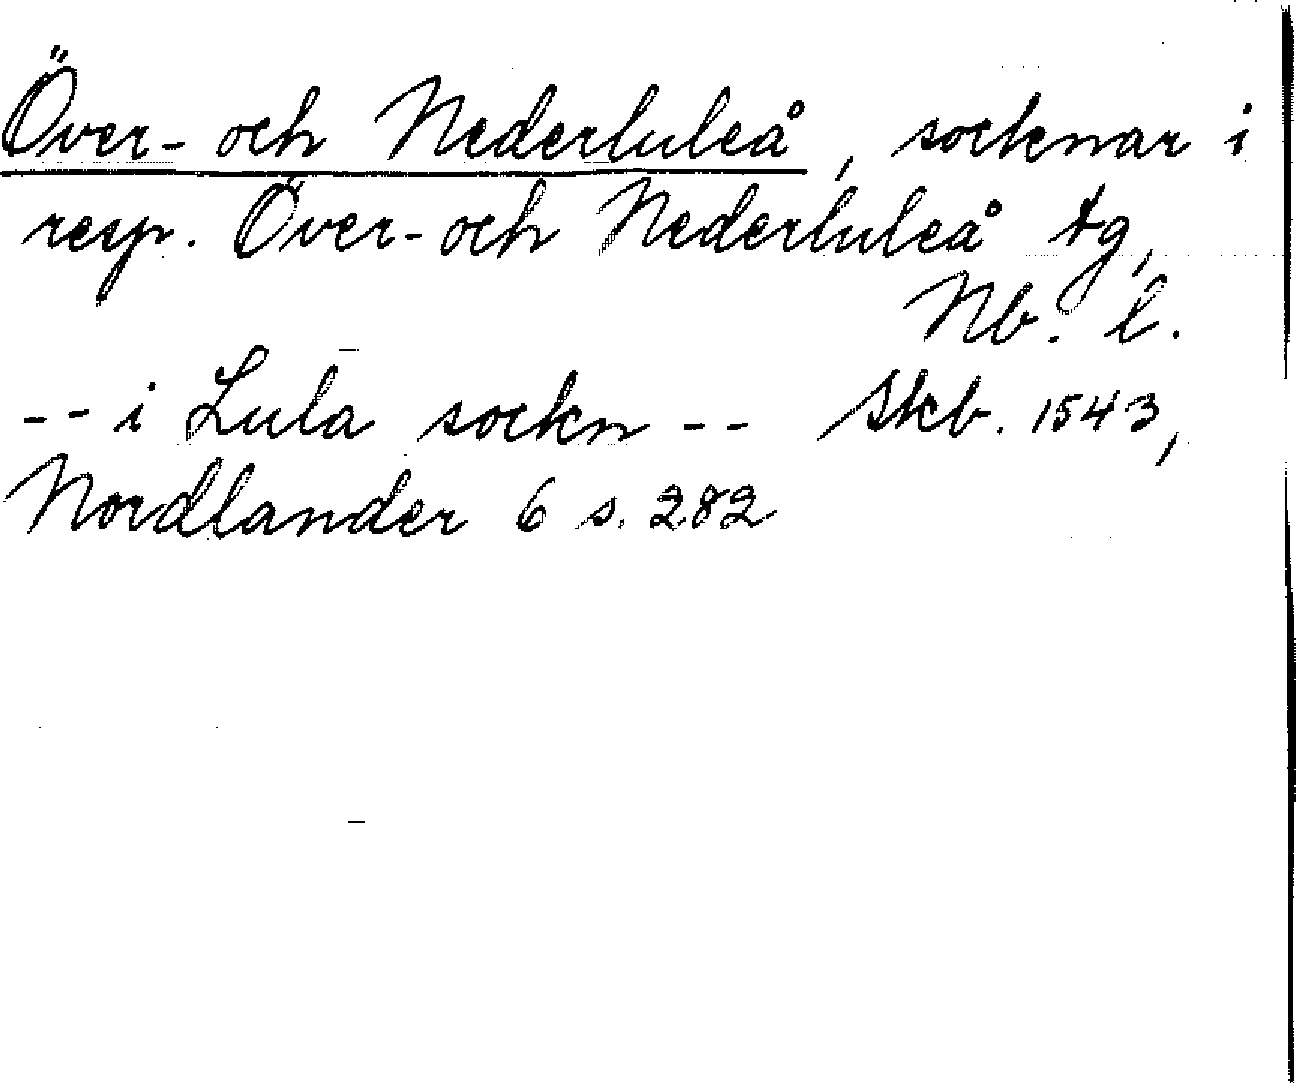 Över- och Nederluleå, socknar i
resp. Över- och Nederluleå tg,
Nb. l.
-- i Lula sockn -- Skb. 1543,
Nordlander 6 s. 282